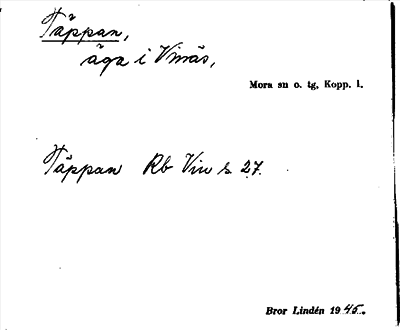 Täppan,
äga i Vinäs,
Mora sn o. tg, Kopp. l.
Täppan Rb Vin s 27.
Bror Lindén 1945.